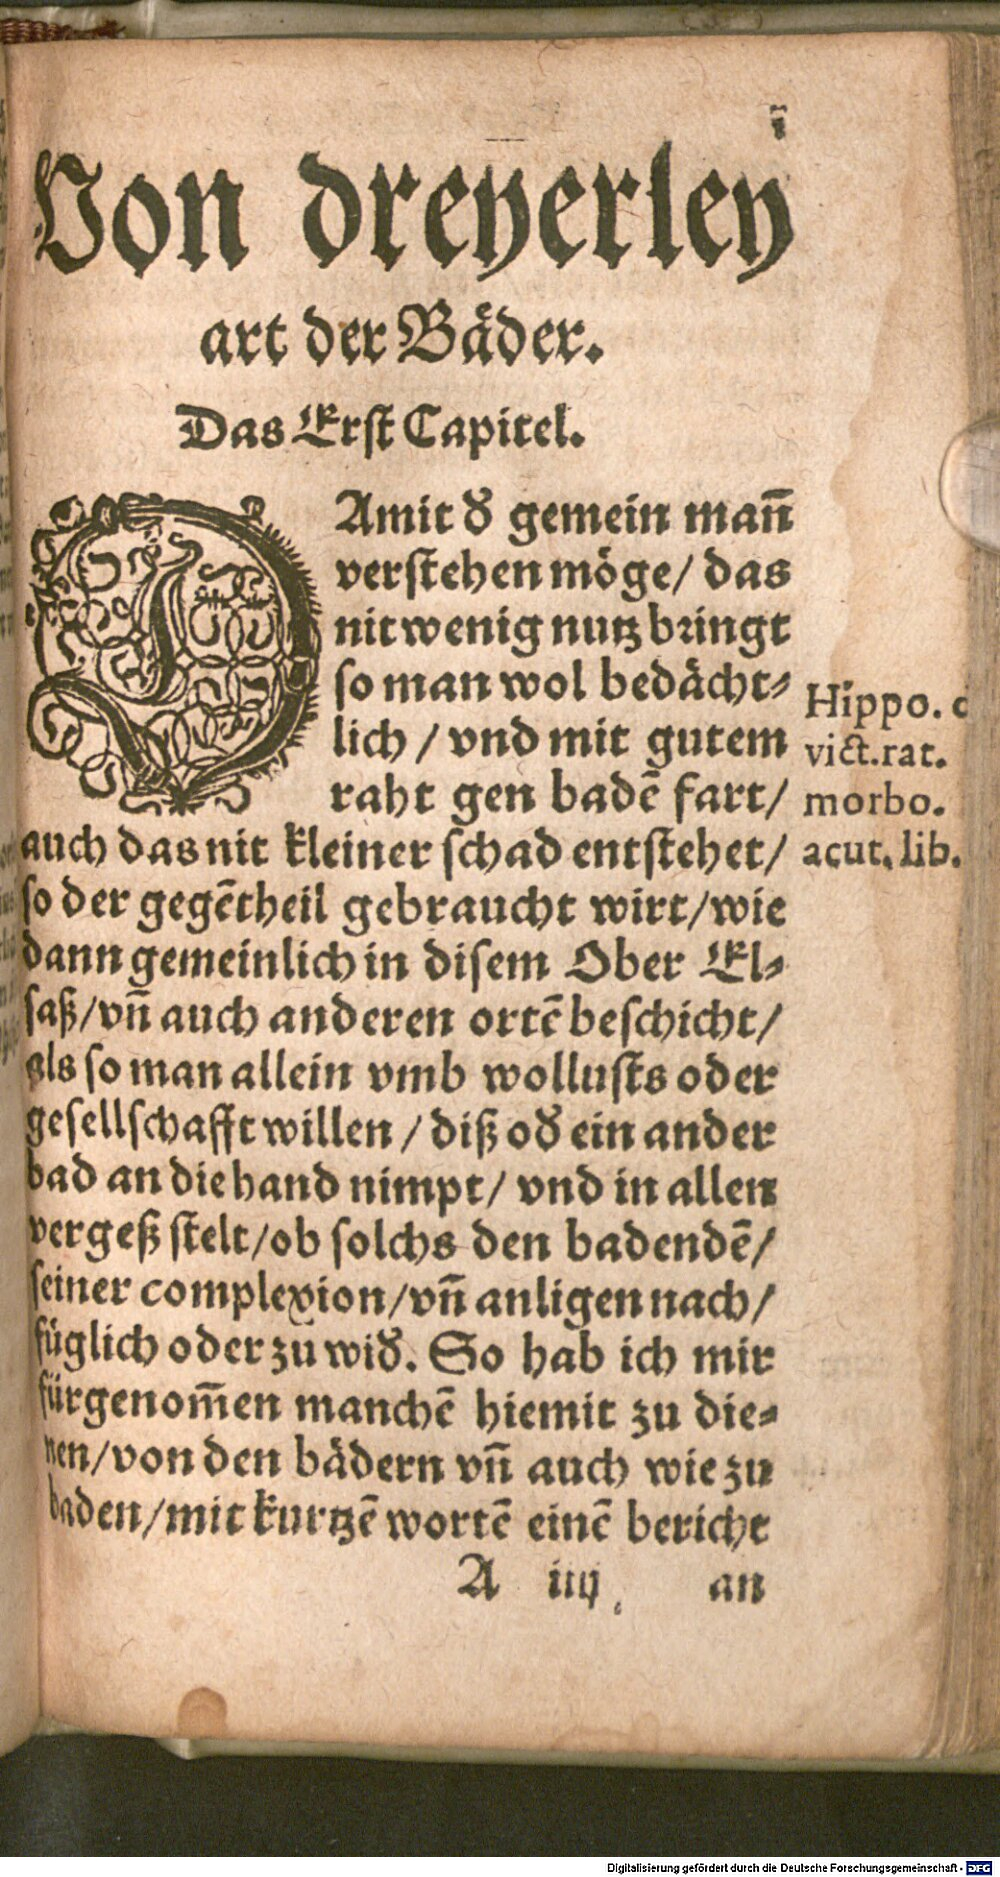 i
Von dreyerley
art der Bäder.
Das Erst Capitel.
DAmit d̕ gemein mañ
verstehen möge/ das
nit wenig nutz bringt
so man wol bedächt⸗
lich / vnd mit gutem
raht gen badẽ fart/
auch das nit kleiner schad entstehet/
so der gegẽtheil gebraucht wirt/wie
dann gemeinlich in disem Ober El⸗
saß/vñ auch anderen ortẽ beschicht/
als so man allein vmb wollusts oder
gesellschafft willen / diß od̕ ein ander
bad an die hand nimpt/ vnd in allen
vergeß stelt/ob solchs den badendẽ/
seiner complexion/vñ anligen nach/
füglich oder zu wid̕. So hab ich mir
fürgenom̃en manchẽ hiemit zu die⸗
nen/von den bädern vñ auch wie zu
baden/mit kurtzẽ wortẽ einẽ bericht
A iiij an
Hippo. d
vict.rat.
morbo.
acut. lib.
Digitalisierung gefördert durch die Deutsche Forschungsgemeinschaft - DFG